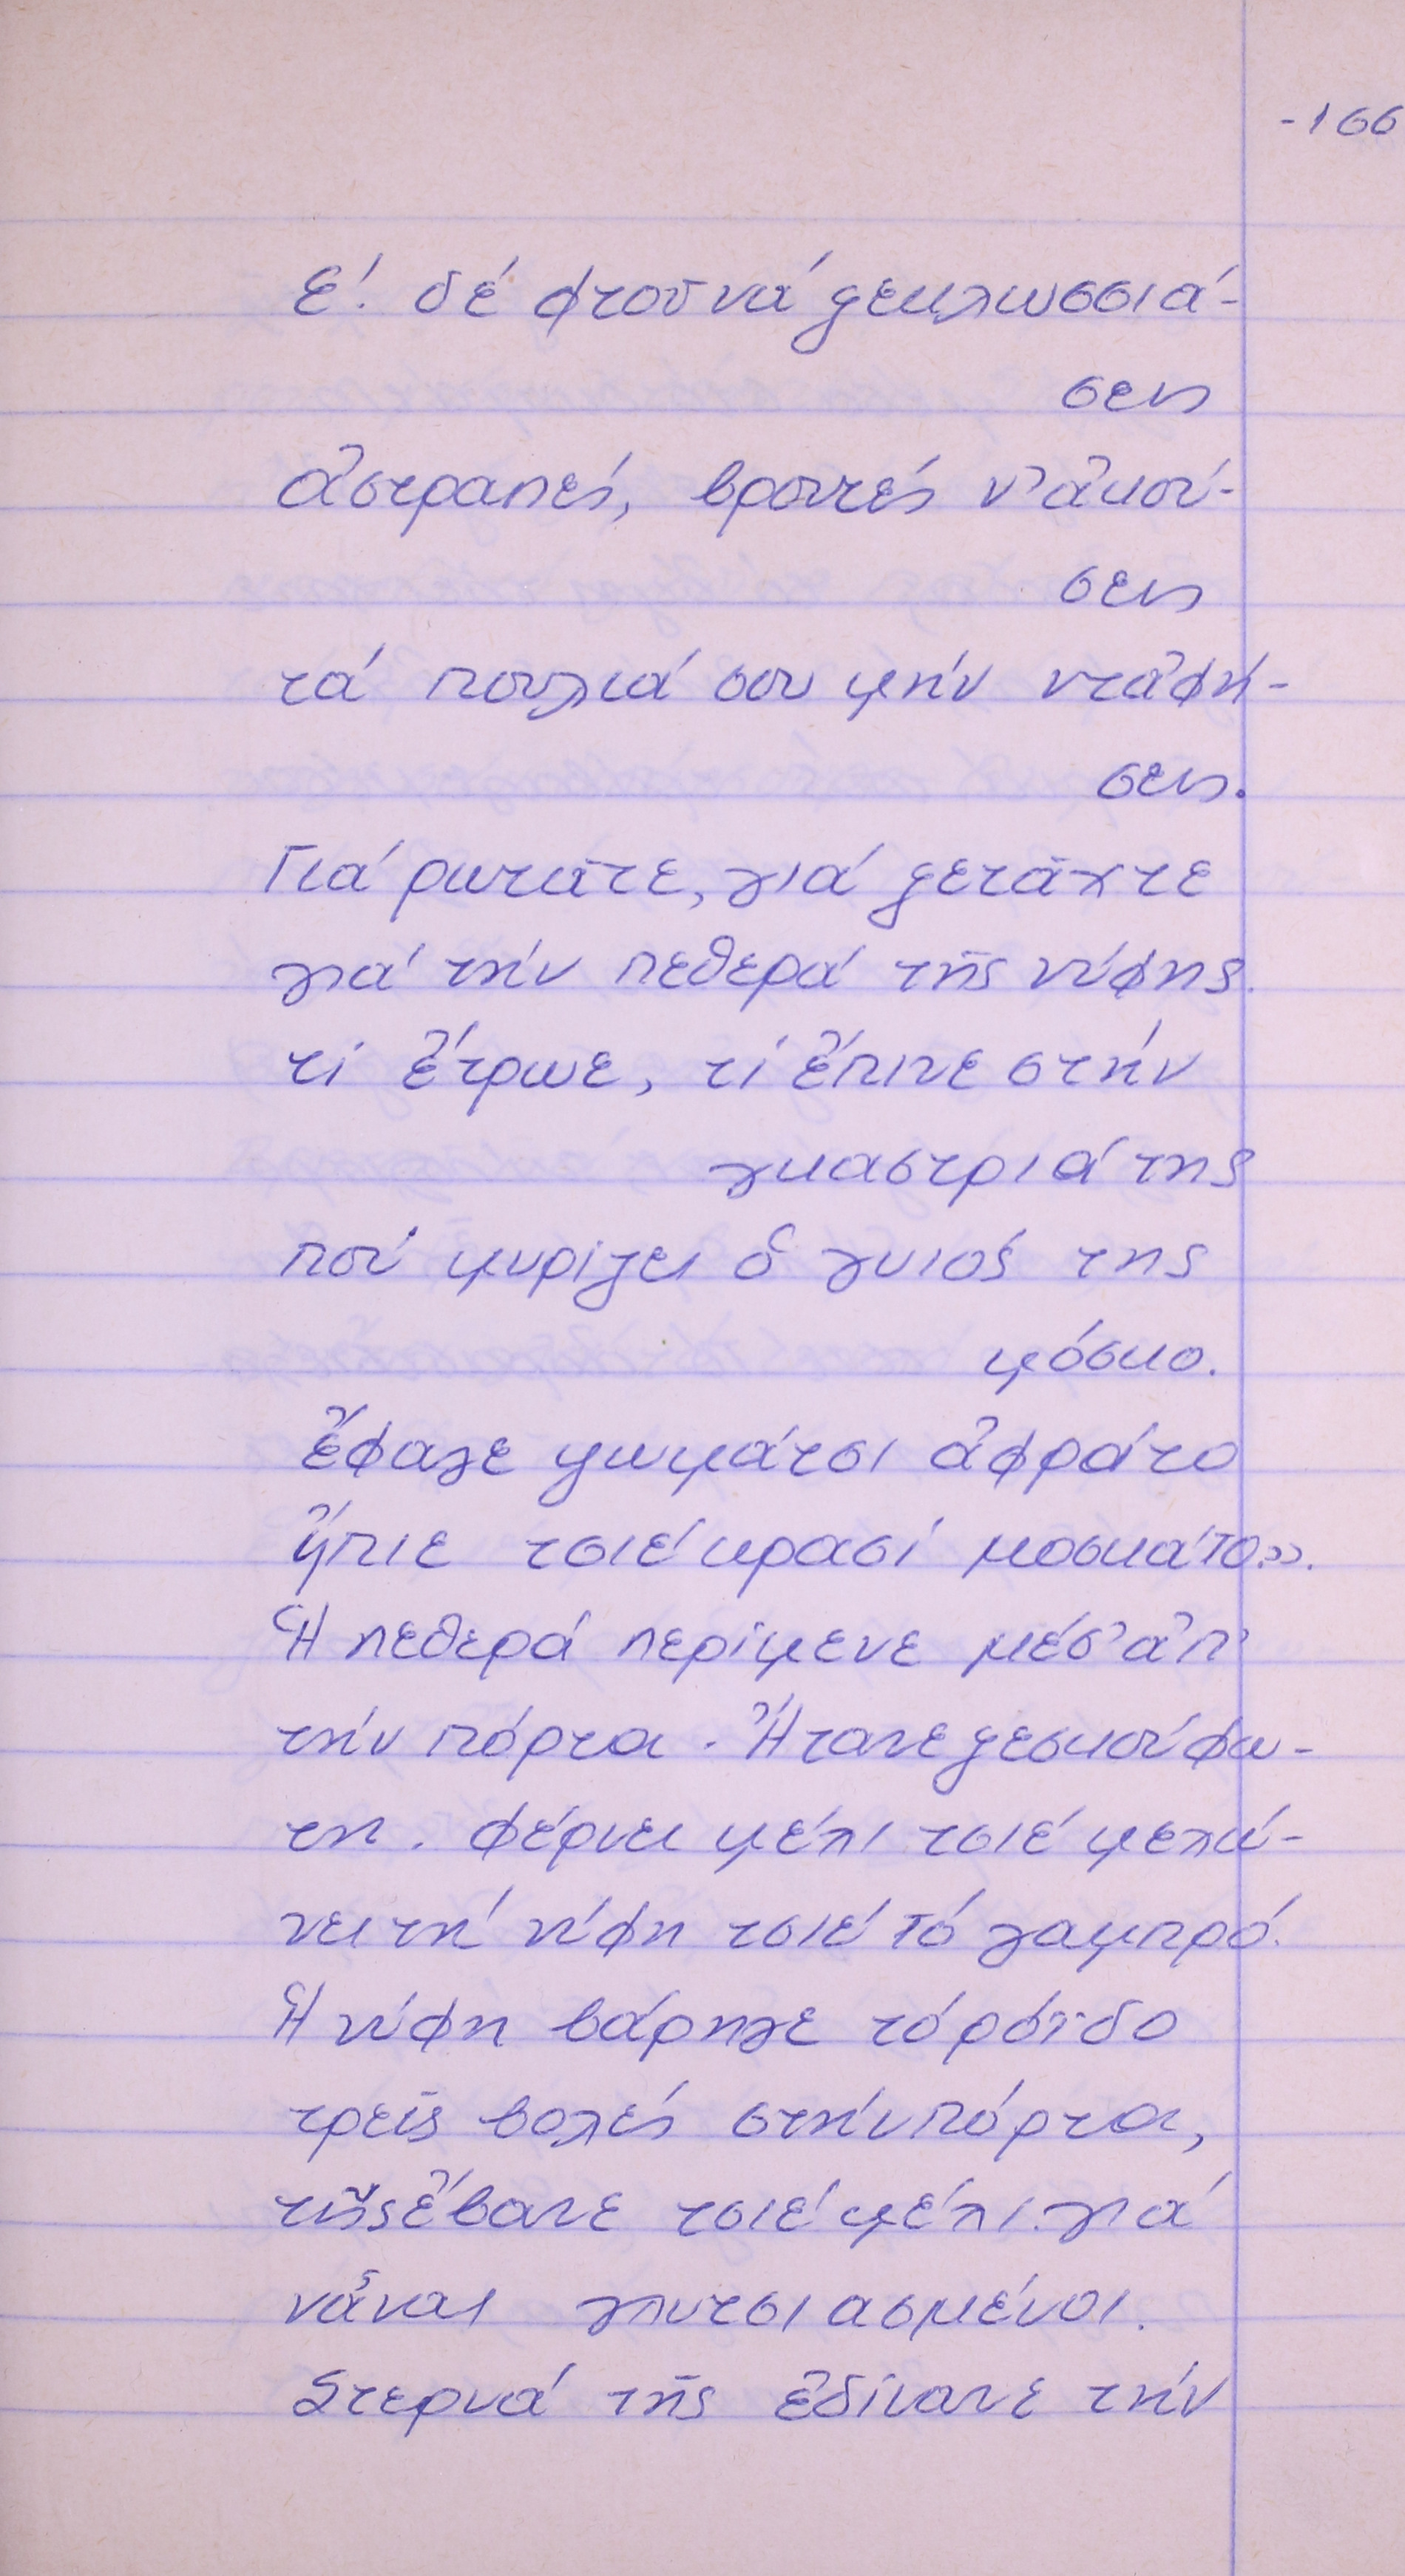 -166
Ε! δέ φτοῦ νά ξεκλωσσιά-
σεις
ἀστραπές, βροντές ν' ἀκού-
σεις
τά πουλιά σου μήν ντἀφή-
σεις.
Γιά ρωτᾶτε, γιά ξετᾶχτε
γιά τήν πεθερά τῆς νύφης.
τί ἔτρωε, τί ἔπινε στήν
γκαστριά της
πού μυρίζει ὁ γυιός της
μόσκο.
ἔφαγε ψωμάτσι ἀφράτο
ἤπιε τσιέ κρασί μοσκάτο.».
Ἡ πεθερά περίμενε μέσ' ἀπ'
τήν πόρτα. Ἤτανε ξεσκούφω-
τη. φέρνει μέλι τσιέ μελώ-
νει τή νύφη τσιέ τό γαμπρό.
Ἡ νύφη βάρηγε τό ρόϊδο
τρεῖς βολές στήν πόρτα,
τῆς ἔβανε τσιέ μέλι. γιά
νἆναι γλυτσιασμένοι.
Στερνά τῆς ἐδίνανε τήν